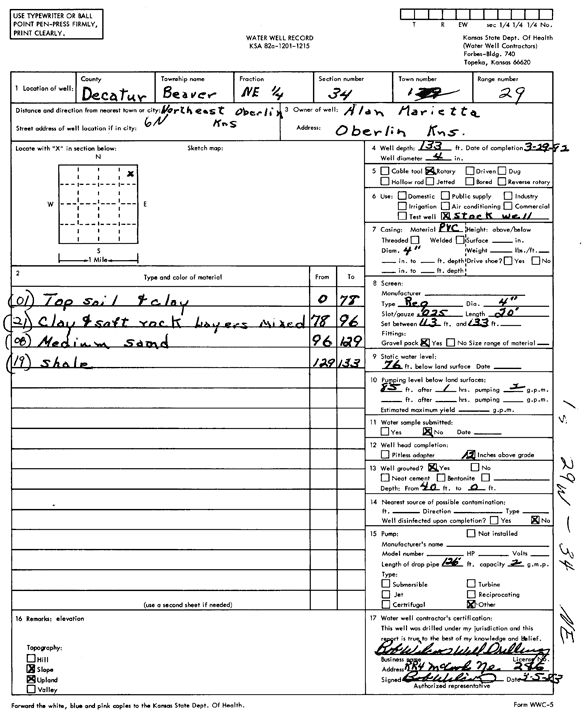 USE TYPEWRITER OR BALL
POINT PEN-PRESS FIRMLY,
PRINT CLEARLY.
WATER WELL RECORD
KSA 82a-1201-1215
T R EW sec 1/4 1/4 1/4 No.
Kansas State Dept. Of Health
(Water Well Contractors)
Forbes-Bldg. 740
Topeka, Kansas 66620
1 Location of well:
County
Decatur
Township name
Beaver
Fraction
NE 1/4
Section number
34
Town number
Range number
29
Distance and direction from nearest town or city: Northeast Oberlin
6N Kns
Street address of well location if in city:
3 Owner of well: Alan Marietta
Address: Oberlin Kns.
Locate with "X" in section below:
Sketch map:
N
X
W E
S
1 Mile
2 Type and color of material From To
(01) Top soil & clay 0 78
(21) Clay & soft rock layers mixed 78 96
(08) Medium sand 96 129
(19) Shale 129 133
(use a second sheet if needed)
16 Remarks: elevation
Topography:
Hill
X Slope
X Upland
Valley
4 Well depth: 133 ft. Date of completion 3-29-82
Well diameter 4 in.
5 Cable tool X Rotary Driven Dug
Hollow rod Jetted Bored Reverse rotary
6 Use: Domestic Public supply Industry
Irrigation Air conditioning Commercial
Test well X Stock well
7 Casing: Material PVC Height: above/below
Threaded Welded Surface in.
Diam. 4" Weight lbs./ft.
in. to ft. depth Drive shoe? Yes No
in. to ft. depth
8 Screen:
Manufacturer
Type Reg Dia. 4"
Slot/gauze .025 Length 20'
Set between 113 ft. and 133 ft.
Fittings:
Gravel pack X Yes No Size range of material
9 Static water level:
76 ft. below land surface Date
10 Pumping level below land surfaces:
85 ft. after 1 hrs. pumping 2 g.p.m.
ft. after hrs. pumping g.p.m.
Estimated maximum yield g.p.m.
11 Water sample submitted:
Yes X No Date
12 Well head completion:
Pitless adapter 12 Inches above grade
13 Well grouted? X Yes No
Neat cement Bentonite
Depth: From 40 ft. to 0 ft.
14 Nearest source of possible contamination:
ft. Direction Type
Well disinfected upon completion? Yes X No
15 Pump: Not installed
Manufacturer's name
Model number HP Volts
Length of drop pipe 126 ft. capacity 2 g.m.p.
Type:
Submersible Turbine
Jet Reciprocating
Certrifugal X Other
17 Water well contractor's certification:
This well was drilled under my jurisdiction and this
report is true to the best of my knowledge and belief.
Bob Wilson Well Drilling
Business name License No.
Address RR4 McCook Ne. 286
Signed Bob Wilson Date
Authorized representative
Forward the white, blue and pink copies to the Kansas State Dept. Of Health.
Form WWC-5
1s 29W - 34 NE